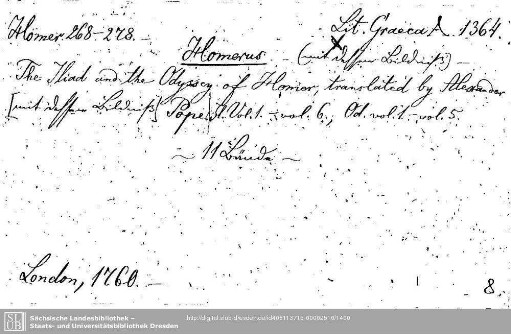 Homer 268-278.
Lit. Graeca A. 1364.
Homerus (mit dessen Bildniß)
The Iliad and the Odyssey of Homer, translated by Alexander
[mit dessen Bildniß] Pope. Il. Vol. 1. - vol. 6., Od. vol. 1. - vol. 5.
11 Bände
London, 1760.
8
SLUB
Sächsische Landesbibliothek –
Staats- und Universitätsbibliothek Dresden